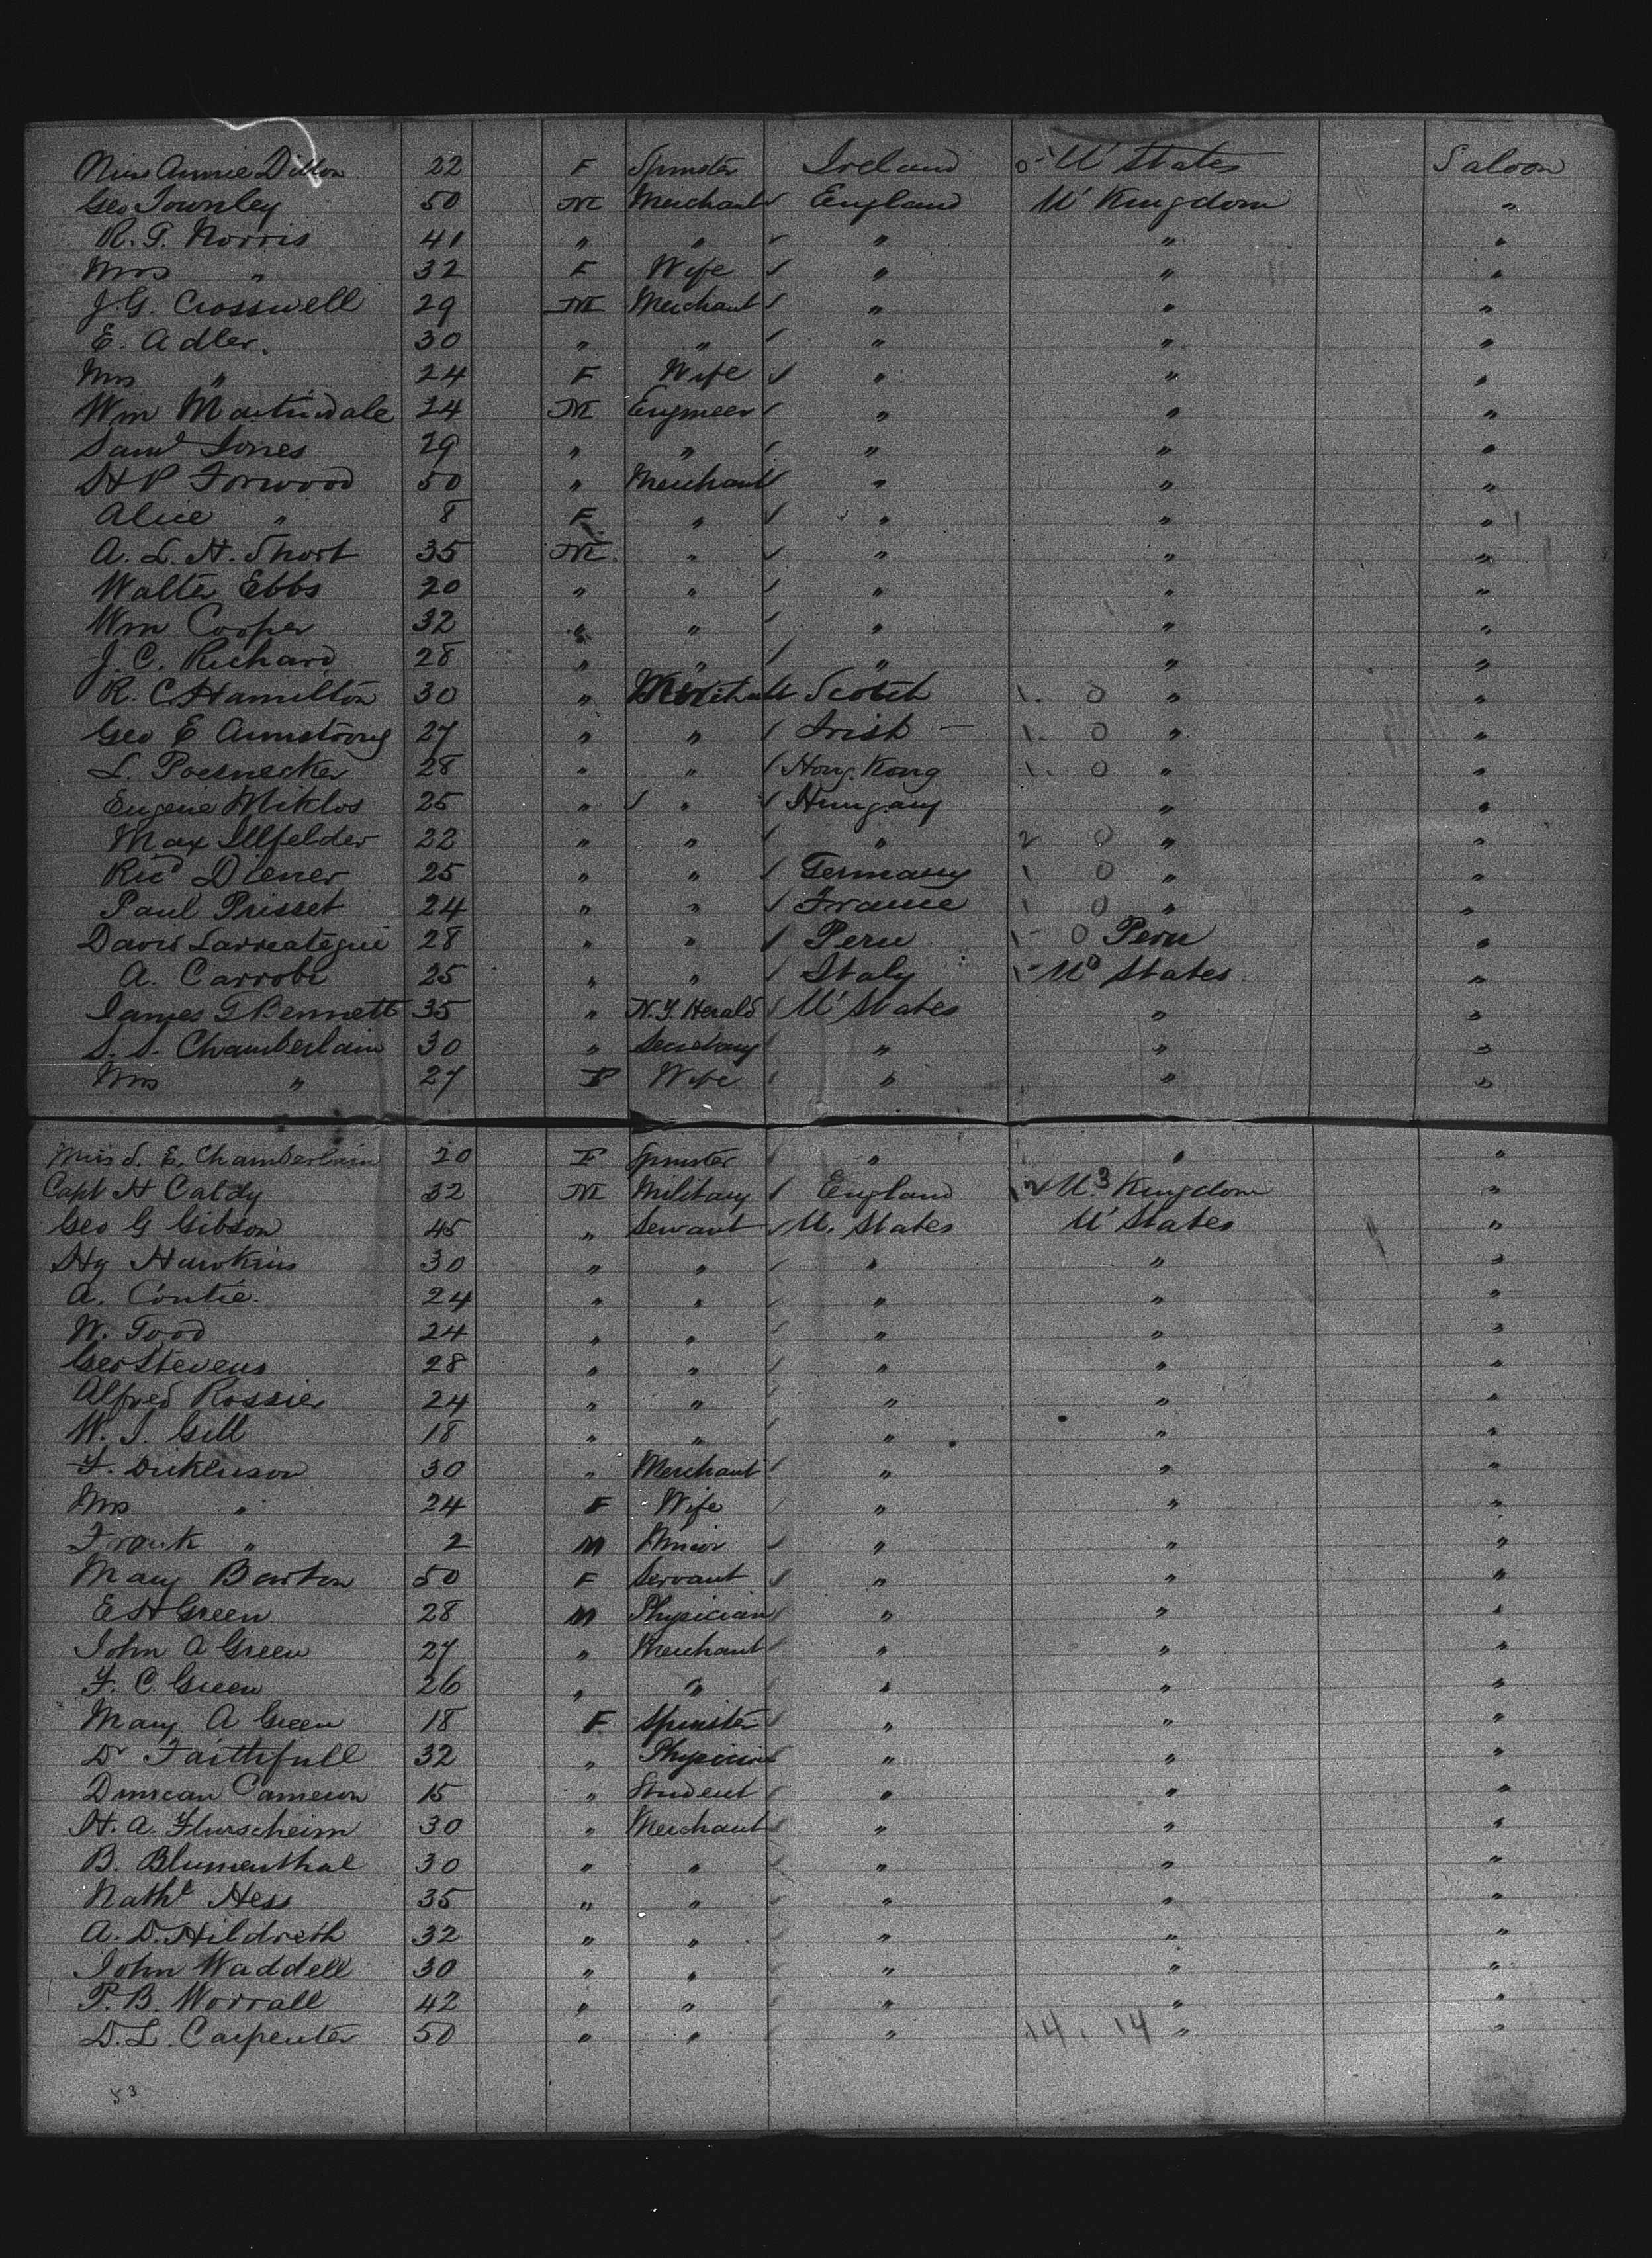 Miss Annie Dillon 22 F Spinster Ireland U' States Saloon
Geo Townley 50 M Merchant England U' Kingdom "
R. T. Norris 41 " " " " "
Mrs " 32 F Wife " " "
J. G. Crosswell 29 M Merchant " " "
E. Adler. 30 " " " " "
Mrs " 24 F Wife " " "
Wm Martindale 24 M Engineer " " "
Saml Jones 29 " " " " "
H P Forwood 50 " Merchant " " "
Alice " 8 F " " " "
A. L. H. Short 35 M. " " " "
Walter Ebbs 20 " " " " "
Wm Cooper 32 " " " " "
J. C. Richard 28 " " " " "
R. C. Hamilton 30 " Merchant Scotch 1. 0 " "
Geo E Armstrong 27 " " Irish 1. 0 " "
L. Poesnecker 28 " " Hong Kong 1. 0 " "
Eugene Miklos 25 " " Hungary " "
Max Illfelder 22 " " " 2 0 " "
Ricd Diener 25 " " Germany 1 0 " "
Paul Prisset 24 " " France 1 0 " "
David Larreategui 28 " " Peru 1 0 Peru "
A. Carrobi 25 " " Italy 1 Ud States "
James G Bennett 35 " N. Y. Herald U' States " "
S. S. Chamberlain 30 " Secretary " " "
Mrs " 27 F Wife " " "
Miss S. E. Chamberlain 20 F Spinster " " "
Capt H Caldy 32 M Military England U. Kingdom "
Geo G Gibson 45 " Servant U. States U' States "
Hy Hawkins 30 " " " " "
A. Contie. 24 " " " " "
W. Todd 24 " " " " "
Geo Stevens 28 " " " " "
Alfred Rossier 24 " " " " "
W. J. Gill 18 " " " " "
F. Dickinson 30 " Merchant " " "
Mrs " 24 F Wife " " "
Frank " 2 M Minor " " "
Mary Barton 50 F Servant " " "
E H Green 28 M Physician " " "
John A Green 27 " Merchant " " "
F. C. Green 26 " " " " "
Mary A Green 18 F Spinster " " "
Dr Faithfull 32 " Physician " " "
Duncan Cameron 15 " Student " " "
H. A. Flurscheim 30 " Merchant " " "
B. Blumenthal 30 " " " " "
Nathl Hess 35 " " " " "
A. D. Hildreth 32 " " " " "
John Waddell 30 " " " " "
P. B. Worrall 42 " " " " "
D. L. Carpenter 50 " " " 14. 14 " "
53